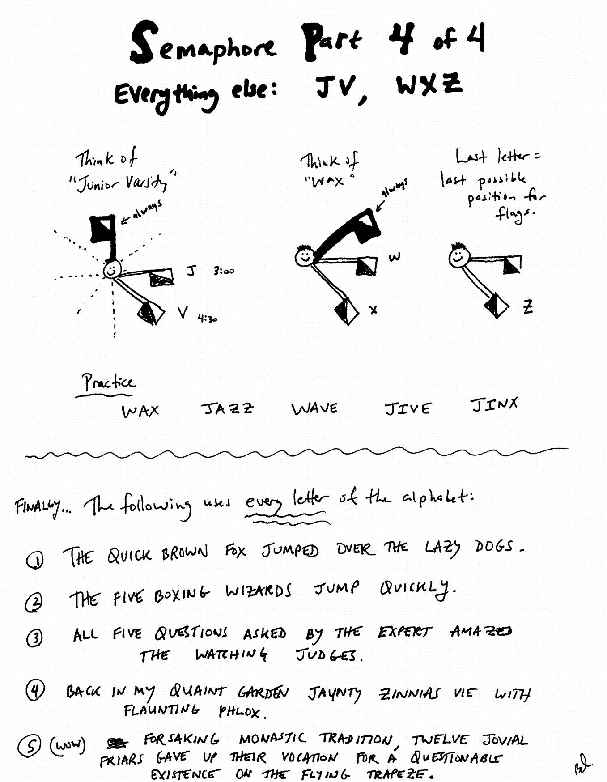 Semaphore Part 4 of 4
Everything else: JV, WXZ
Think of
"Junior Varsity"
always
J 3:00
V 4:30
Think of
"Wax"
always
W
X
Last letter =
last possible
position for
flags.
Z
Practice
WAX JAZZ WAVE JIVE JINX
FINALLY... The following uses every letter of the alphabet:
1 THE QUICK BROWN FOX JUMPED OVER THE LAZY DOGS.
2 THE FIVE BOXING WIZARDS JUMP QUICKLY.
3 ALL FIVE QUESTIONS ASKED BY THE EXPERT AMAZED
THE WATCHING JUDGES.
4 BACK IN MY QUAINT GARDEN JAYNTY ZINNIAS VIE WITH
FLAUNTING PHLOX.
5 (WOW) FORSAKING MONASTIC TRADITION, TWELVE JOVIAL
FRIARS GAVE UP THEIR VOCATION FOR A QUESTIONABLE
EXISTENCE ON THE FLYING TRAPEZE.